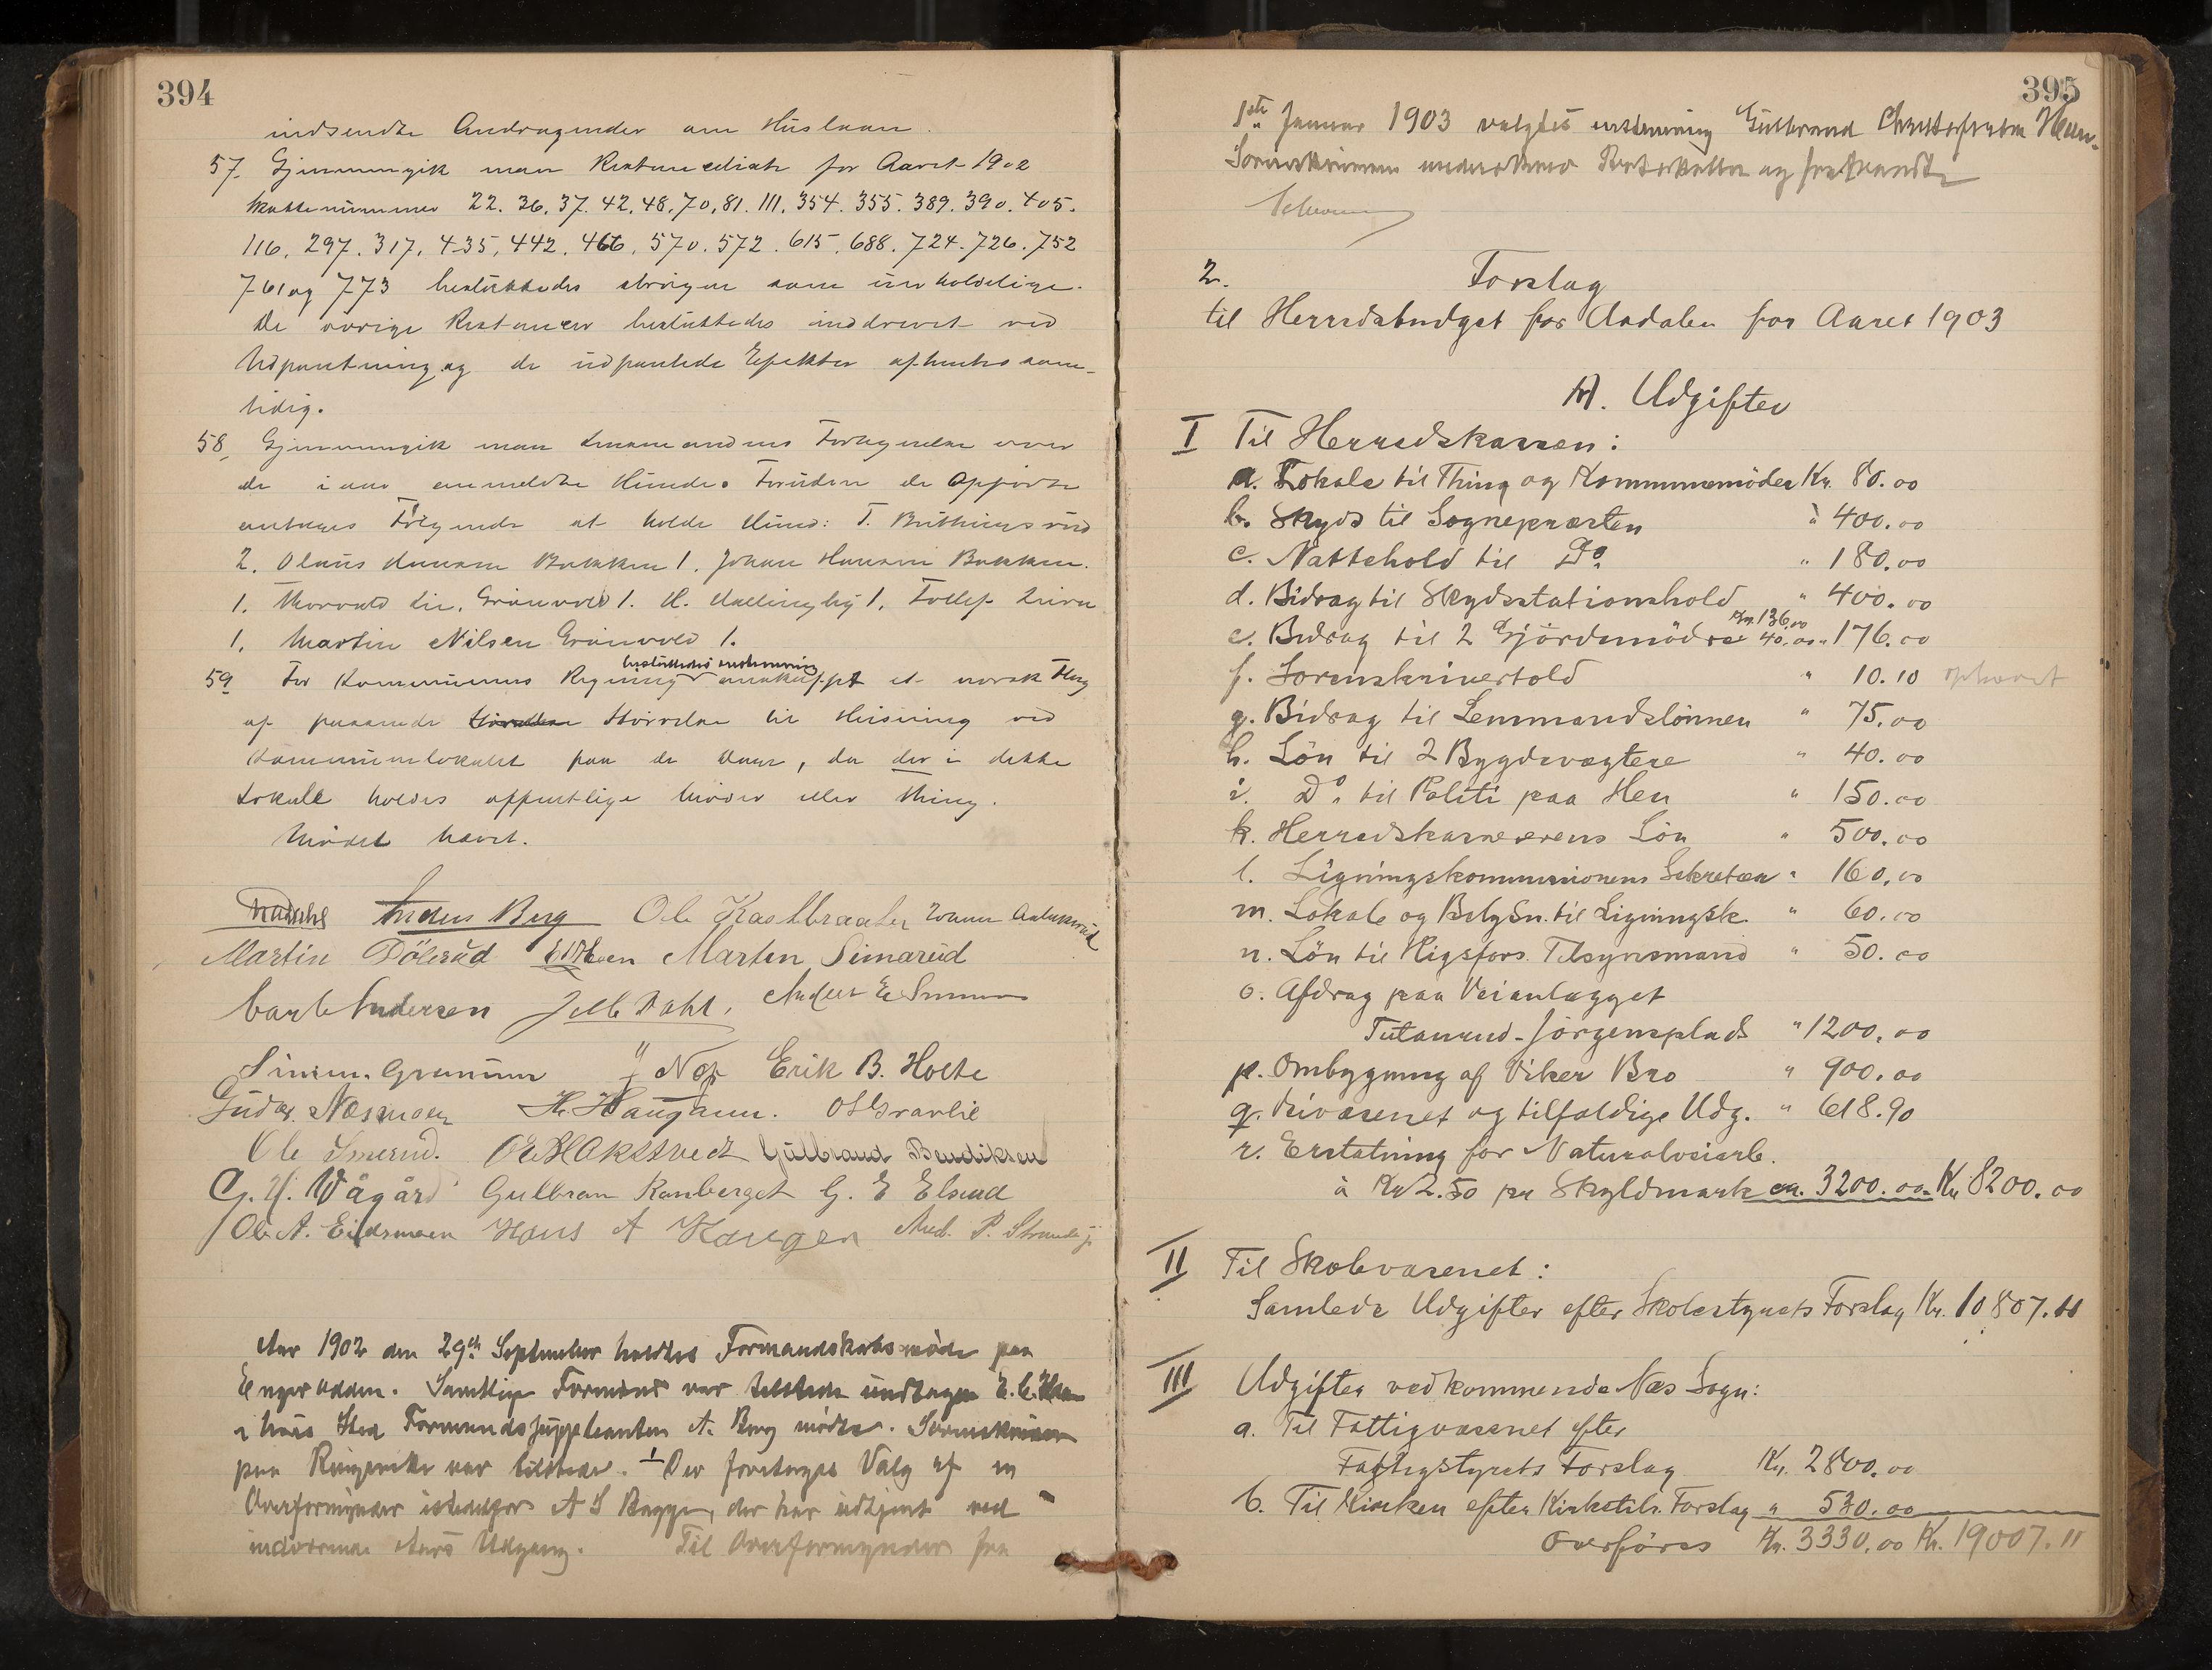 394
indsendte Andragender om Huslaan.
57. Gjennemgik man Restancelisten for Aaret 1902
Skattenummer 22. 36. 37. 42. 48. 70. 81. 111. 354. 355. 389. 390. 405.
116. 297. 317. 435. 442. 466. 570. 572. 615. 688. 724. 726. 752
761 og 773 besluttedes som uerholdelige.
De øvrige Restancer besluttedes inddrevet ved
Udpantning og de udpantede Effekter afhentes sam-
tidig.
58. Gjennemgik man Lensmandens Fortegnelse over
de i aar anmeldte Hunde. Foruden de Opførte
antages Følgende at holde Hund: T.
2. Olaus Hansen Bakken 1. Johan Hansen Bakken.
1. Thorvald Grönvold 1. H. Hallingby 1. Tollef
1. Martin Nilsen Grönvold 1.
besluttedes enstemmig
59 For Kommunens Regning indkjøpt et norsk Flag
af passende Størrelse til Heisning ved
Kommunelokalet paa de Dage, da der i dette
Lokale holdes offentlige Møder eller Thing.
Mødet hævet.
Anders Berg Ole Kastbraaten
Martin Dölerud Marten Simarud
Carl Andersen Dahl. Anders E
Simen. Granum Erik B. Holte
Gudbr. Næsmoen H. Haugann. O
Ole Smerud. Gulbrand Bendiksen
G. H. Vågård Gulbran Ranberget G. E Elsrud
Ole A. Eidsmoen Hans A Haugen And. P.
Aar 1902 den 29de September holdtes Formandskabsmøde paa
Samtlige Formænd var tilstede undtagen E. C.
i hans Sted Formandssuppleanten A. Berg mødte. Sorenskriveren
paa Ringerike var tilstede. 1 Der foretages Valg af en
Overformynder istedetfor A S Bagge, der har udtjent ved
indeværende Aars Udgang. Til Overformynder fra
395
1ste Januar 1903 valgtes enstemmig Gulbrand Christophersen Hen.
Sorenskriveren og fratraadte
2. Forslag
til Herredsbudget for Aadalen for Aaret 1903
A. Udgifter
I Til Herredskassen:
a. Lokale til Thing og Kommunemöder Kr. 80.00
b. Skyds til Sognepræsten " 400.00
c. Nattehold til Do. " 180.00
d. Bidrag til Skydsstationshold " 400.00
Kr. 136.00
e. Bidrag til 2 Gjördemödre 40.00 " 176.00
f. Sorenskrivertold " 10.10 ophævet
g. Bidrag til Lensmandslönnen " 75.00
h. Lön til 2 Bygdevægtere " 40.00
i. Do. til Politi paa Hen " 150.00
k. Herredskassererens Lön " 500.00
l. Ligningskommissionens Sekretær " 160.00
m. Lokale og Belysn. til Ligningsk. " 60.00
n. Lön til Rigsfors. Tilsynsmand " 50.00
o. Afdrag paa Veianlægget
Tutanrud-Jörgensplads " 1200.00
p. Ombygning af Viker Bro " 900.00
q. Veivæsenet og tilfældige Udg. " 618.90
r. Erstatning for Naturalveiarb.
à Kr 2.50 pr Skyldmark ca. 3200.00 Kr. 8200.00
II Til Skolevæsenet:
Samlede Udgifter efter Skolestyrets Forslag Kr. 10807.11
III Udgifter vedkommende Næs Sogn:
a. Til Fattigvæsenet efter
Fattigstyrets Forslag Kr. 2800.00
b. Til Kirken efter Kirketils. Forslag " 530.00
Overföres Kr. 3330.00 Kr. 19007.11